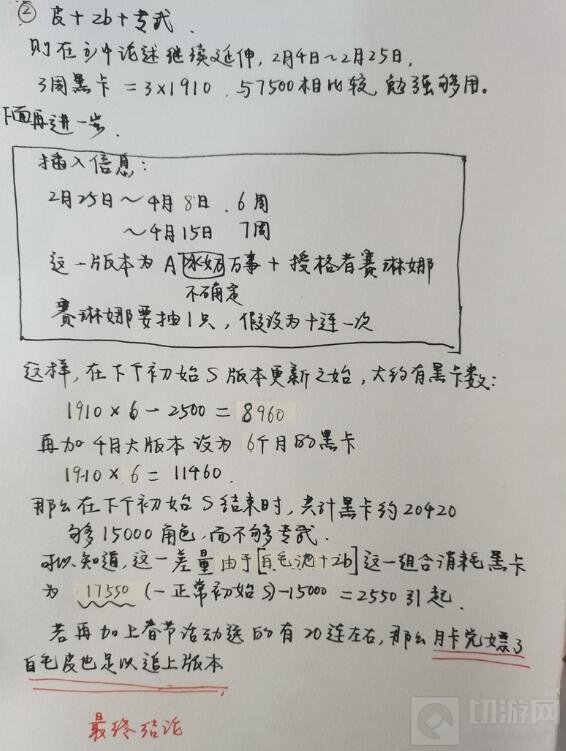 ② 皮+2b+专武.
则在①中论述继续延伸, 2月4日~2月25日,
3周黑卡 = 3×1910. 与7500相比较, 勉强够用。
下面再进一步.
插入信息:
2月25日~4月8日. 6周
~4月15日 7周
这一版本为A冰奶万事+授格者赛琳娜
不确定
赛琳娜要抽1只, 假设为十连一次
这样, 在下个初始S版本更新之始, 大约有黑卡数:
1910×6-2500=8960
再加4月大版本 设为6个月的黑卡
1910×6=11460.
那么在下个初始S结束时, 共计黑卡约20420
够15000角色, 而不够专武.
可以知道, 这一差量由于[白毛池+2b]这一组合消耗黑卡
为 17550 (一正常初始S)-15000=2550引起.
若再加上春节活动送的有20连左右, 那么月卡党嫖了
白毛皮也足以追上版本
最终结论
切游网